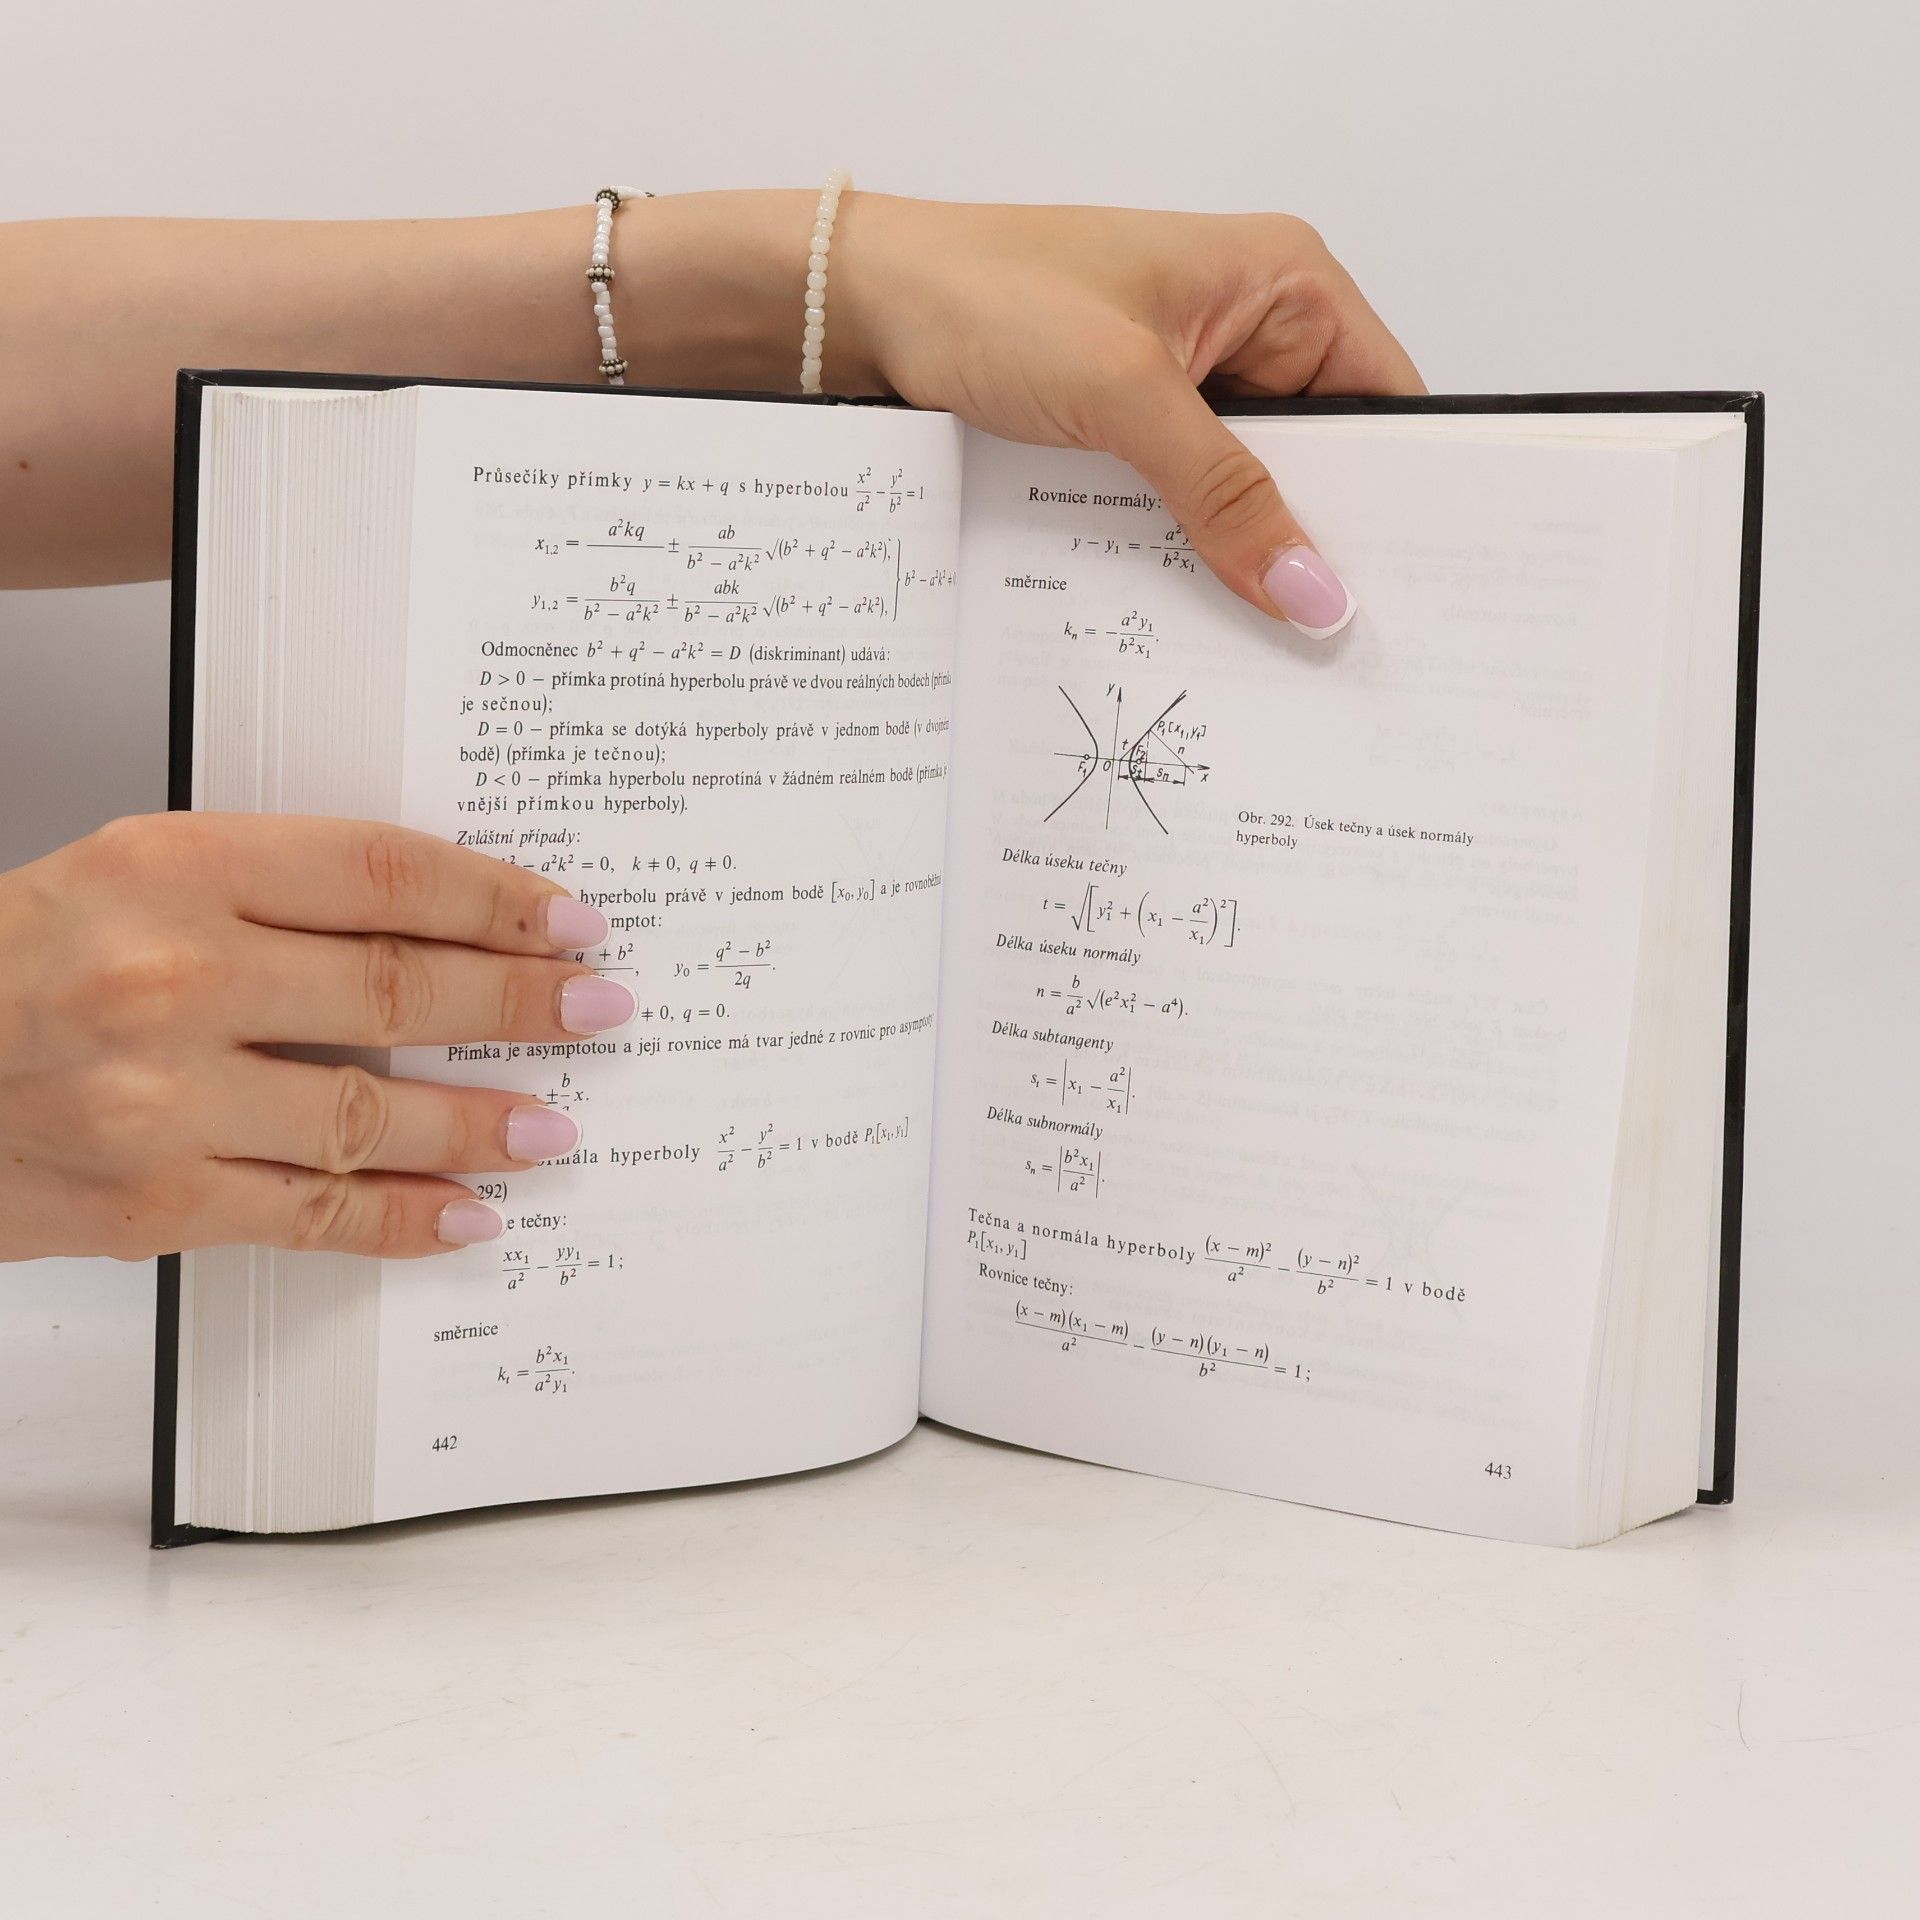 Průsečíky přímky y = kx + q s hyperbolou x²/a² − y²/b² = 1
x₁,₂ = a²kq/ ± ab/(b² − a²k²) √(b² + q² − a²k²),
b² − a²k² ≠
y₁,₂ = b²q/(b² − a²k²) ± abk/(b² − a²k²) √(b² + q² − a²k²),
Odmocněnec b² + q² − a²k² = D (diskriminant) udává:
D > 0 − přímka protíná hyperbolu právě ve dvou reálných bodech
je sečnou);
D = 0 − přímka se dotýká hyperboly právě v jednom bodě (v
bodě) (přímka je tečnou);
D < 0 − přímka hyperbolu neprotíná v žádném reálném bodě
vnější přímkou hyperboly).
Zvláštní případy:
− a²k² = 0, k ≠ 0, q ≠ 0.
hyperbolu právě v jednom bodě [x₀, y₀] a je
+ b², y₀ = (q² − b²)/2q.
≠ 0, q = 0.
Přímka je asymptotou a její rovnice má tvar jedné z rovnic pro
± b/ x.
hyperboly x²/a² − y²/b² = 1 v bodě P₁[x₁, y₁]
292)
tečny:
xx₁/a² − yy₁/b² = 1;
směrnice
kₜ = b²x₁/a²y₁.
442
Rovnice normály:
y − y₁ = − /b²x₁
směrnice
kₙ = − a²y₁/b²x₁.
y
P₁[x₁, y₁]
t
n
F₂
F₁ O sₜ sₙ x
Obr. 292. Úsek tečny a úsek normály
hyperboly
Délka úseku tečny
t = √[y₁² + (x₁ − a²/x₁)²].
Délka úseku normály
n = b/a² √(e²x₁² − a⁴).
Délka subtangenty
sₜ = |x₁ − a²/x₁|.
Délka subnormály
sₙ = |b²x₁/a²|.
Tečna a normála hyperboly (x − m)²/a² − (y − n)²/b² = 1 v bodě
P₁[x₁, y₁]
Rovnice tečny:
(x − m)(x₁ − m)/a² − (y − n)(y₁ − n)/b² = 1;
443